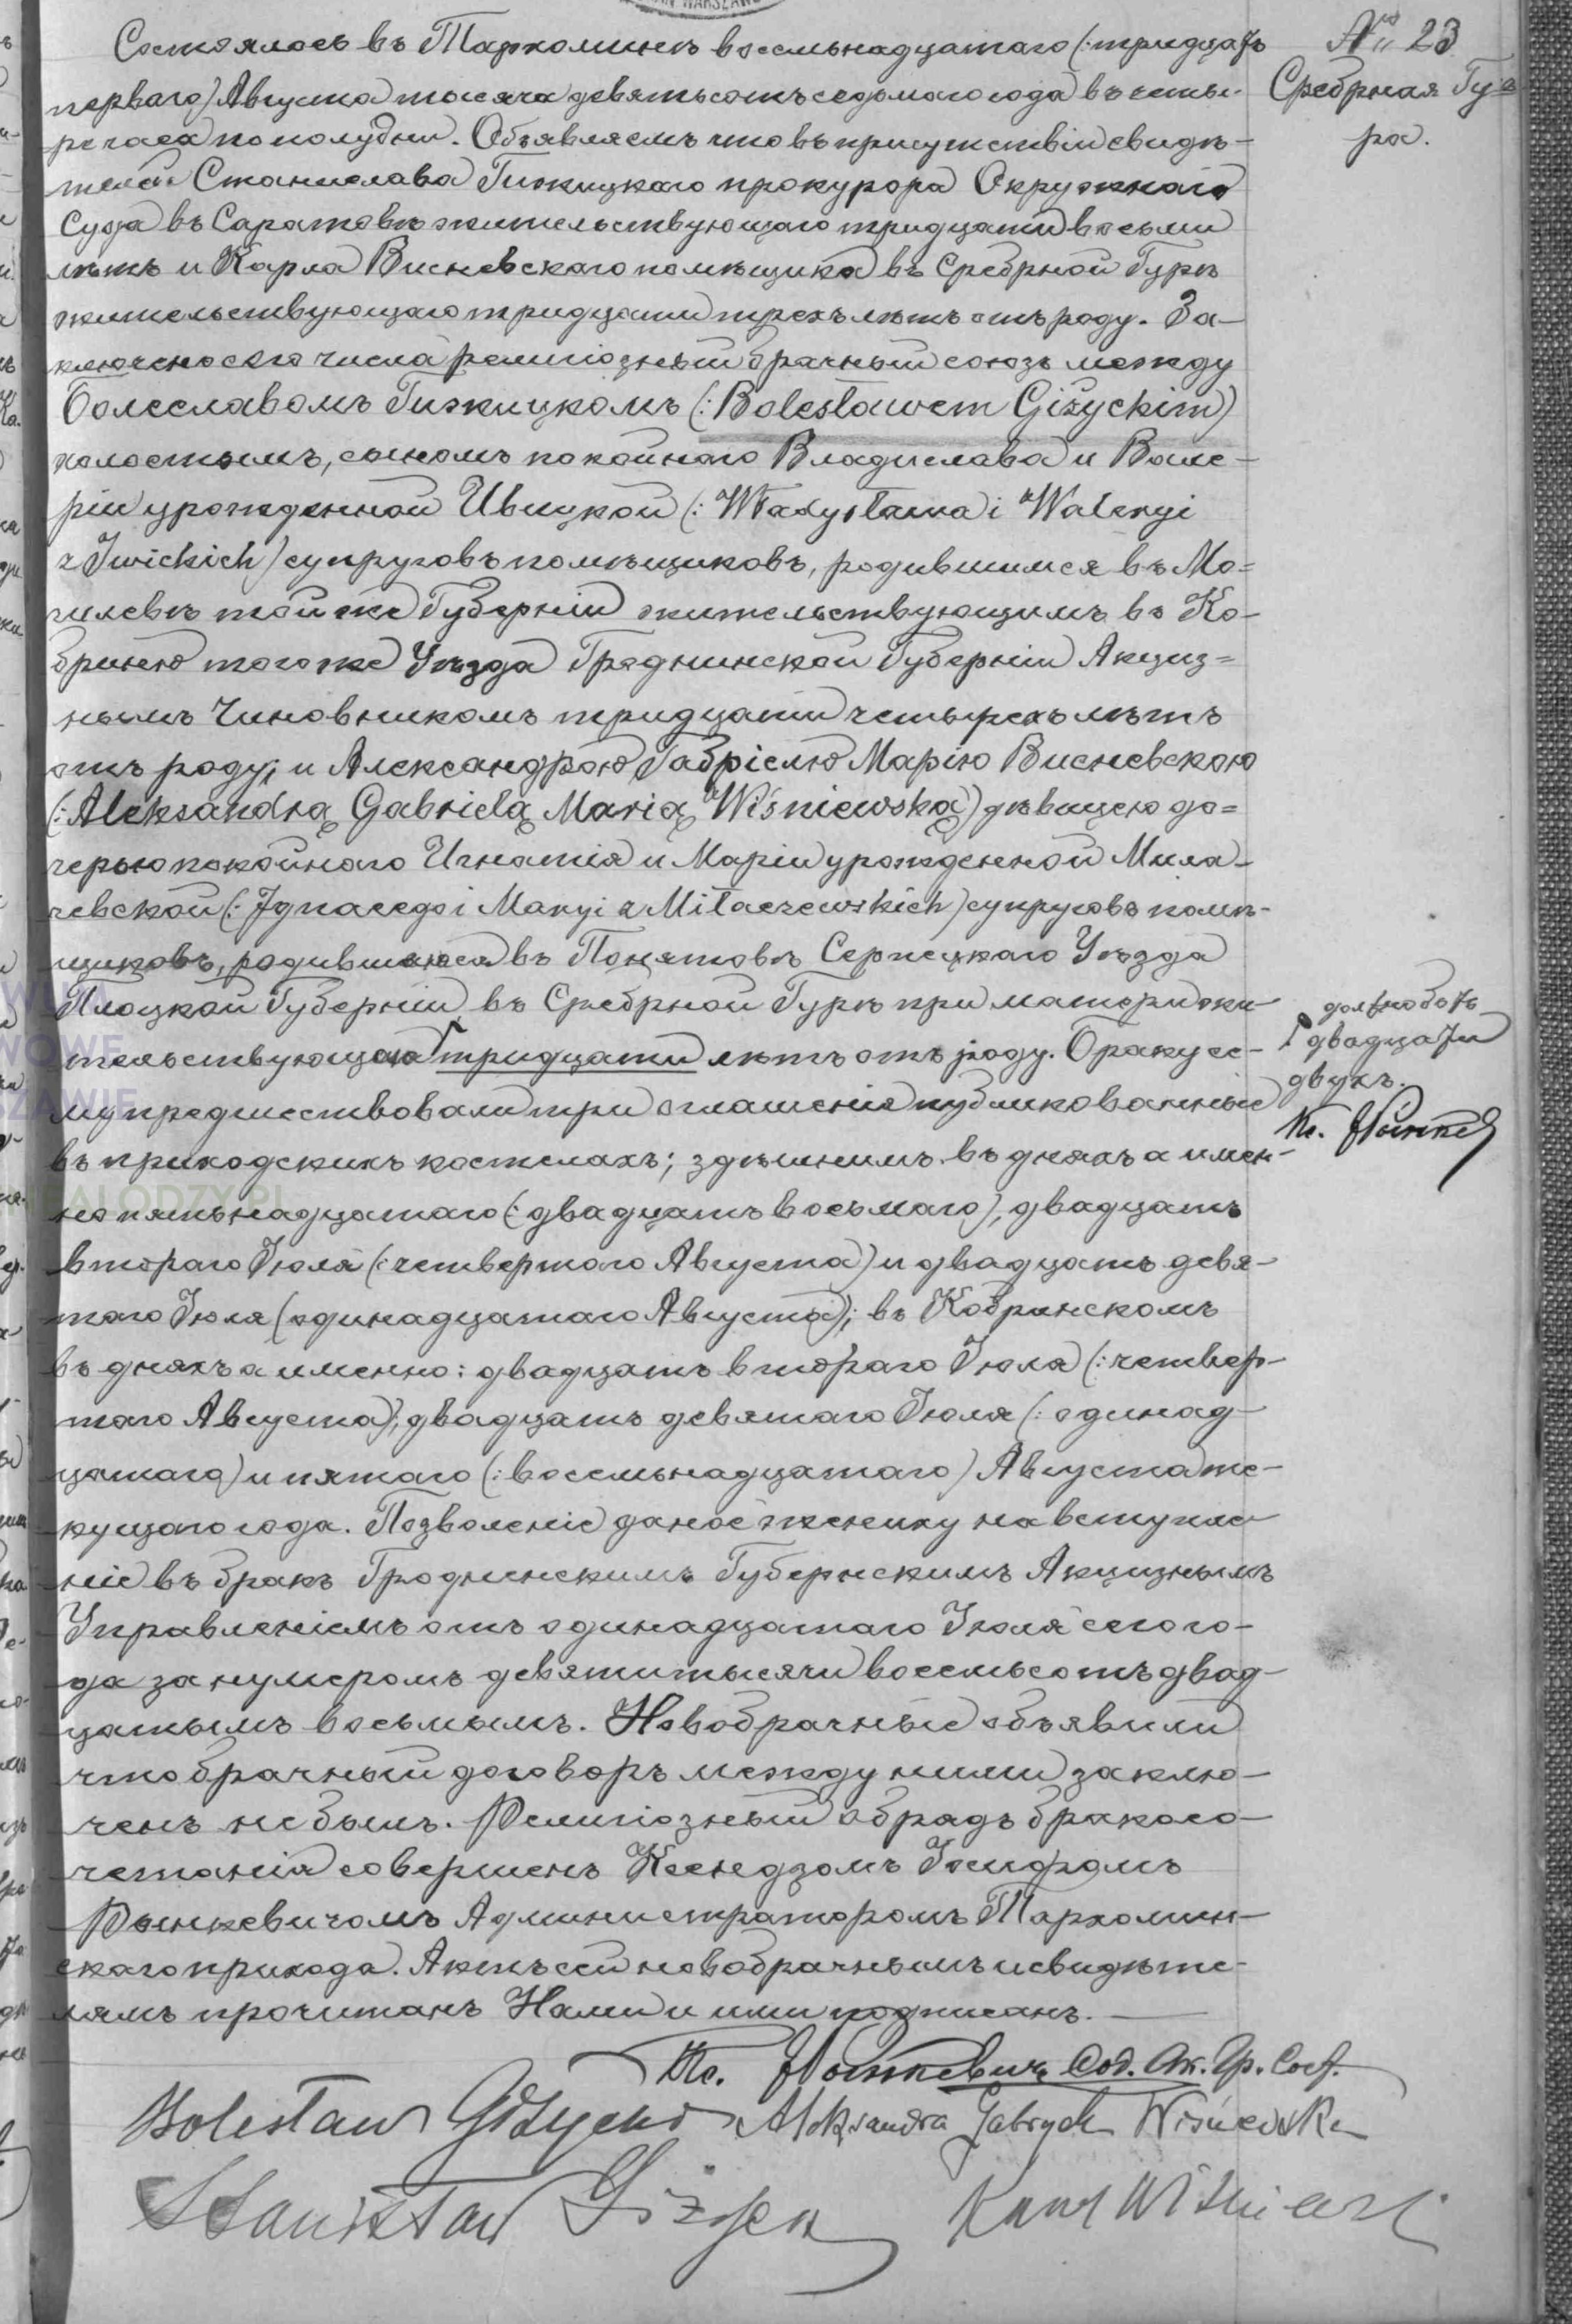 Состоялось въ Тархоминѣ восемьнадцатаго (:тридцать
№ 23
перваго) Августа тысяча девятьсотъ седьмаго года въ четы-
Сребрная Гу-
ре часа по полудни. Объявляемъ что въ присутствіи свидѣ-
ра.
телей Станислава Гижицкаго прокурора Окружнаго
Суда въ Саратовѣ жительствующаго тридцати восьми
лѣтъ и Карла Висневскаго помѣщика въ Сребрной Гурѣ
жительствующаго тридцати трехъ лѣтъ отъ роду. За-
ключено сего числа религіозный брачный союзъ между
Болеславомъ Гижицкомъ (:Bolesławem Giżyckim)
холостымъ, сыномъ покойнаго Владислава и Вале-
ріи урожденной Ивицкой (:Władysława i Waleryi
z Iwickich) супруговъ помѣщиковъ, родившимся въ Мо=
гилевѣ той же Губерніи жительствующимъ въ Ко-
бриню того же Уѣзда Гроднинской Губерніи Акциз=
нымъ Чиновникомъ тридцати четырехъ лѣтъ
отъ роду; и Александрою Габріелю Марію Висневскою
(:Aleksandrą Gabrielą Marią Wiśniewską) дѣвицею до=
черью покойнаго Игнатія и Маріи урожденной Мила-
чевской (:Ignacego i Maryi z Miłaczewskich) супруговъ помѣ-
щиковъ, родившаюся въ Понятовѣ Серпецкаго Уѣзда
Плоцкой Губерніи въ Сребрной Гурѣ при матери жи-
тельствующаю Г тридцати лѣтъ отъ роду. О браку се-
должно быть
Г двадцати
двухъ.
Кс. Рынке
му предшествовали три оглашенія публикованные
въ приходскихъ костелахъ; здѣшнимъ въ дняхъ а имен-
но пятьнадцатаго (:двадцать восьмаго), двадцать
втораго Іюля (:четвертого Августа) и двадцать девя-
таго Іюля (одинадцатаго Августа); въ Кобринскомъ
въ дняхъ а именно: двадцать втораго Іюля (:четвер-
таго Августа); двадцать девятаго Іюля (:одинад-
цатаго) и пятаго (:восемьнадцатаго) Августа те-
кущаго года. Позволеніе даное жениху на вступле-
ніе въ бракъ Гродненскимъ Губернскимъ Акцизнымъ
Управленіемъ отъ одинадцатаго Іюля сего го-
да за нумеромъ девяти тысячи восемьсотъ двад-
цатымъ восьмымъ. Новобрачные объявили
что брачный договоръ между ними заклю-
ченъ не былъ. Религіозный обрядъ бракосо-
четанія совершенъ Ксендзомъ Іосифомъ
Рынкевичомъ Администраторомъ Тархомин-
скаго прихода. Актъ сей новобрачнымъ и свидѣте-
лямъ прочитанъ Нами и ими подписанъ.
Кс. Рынкевичъ Сод. Ак. Гр. Сост.
Bolesław Giżycki Aleksandra Gabryela Wiśniewska
Stanisław Giżycki Karol Wiśniewski